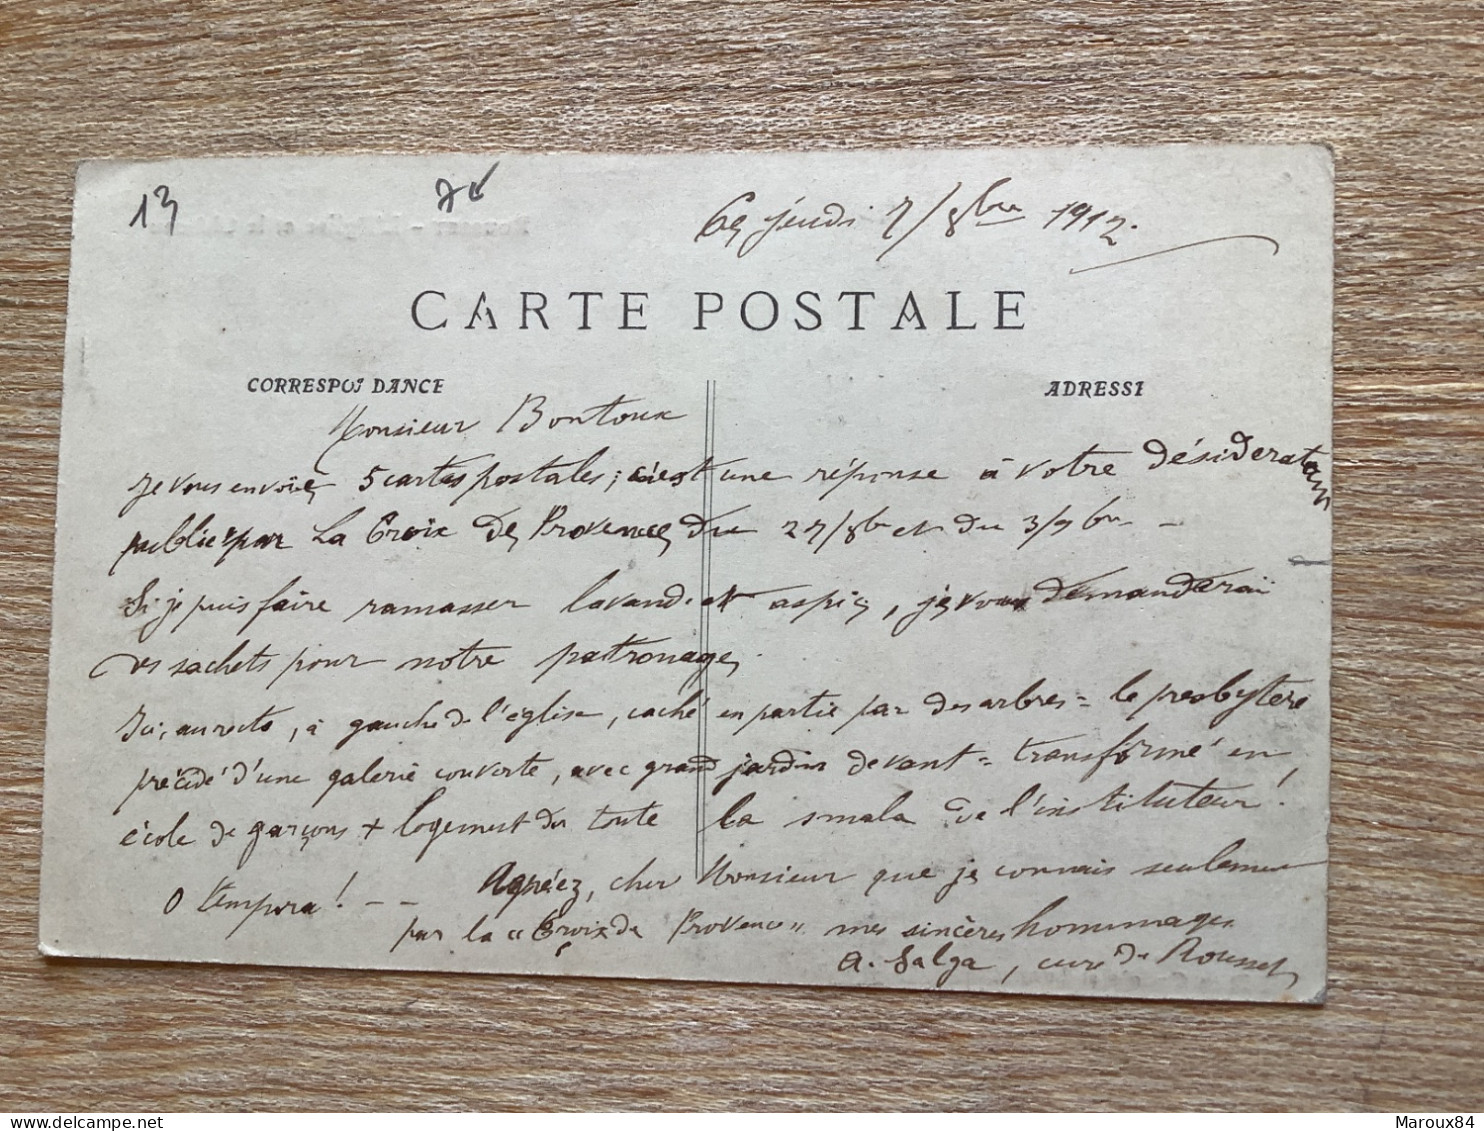 13
Ce jeudi 7/8bre 1912.
CARTE POSTALE
CORRESPONDANCE
ADRESSE
Monsieur Bontoux
Je vous envoie 5 cartes postales ; c'est une réponse à votre désideratum
publié par La Croix de Provence du 27/8bre et du 3/9bre —
Si je puis faire ramasser lavande et aspic, je vous demanderai
des sachets pour notre patronage.
Ici, au recto, à gauche de l'église, caché en partie par des arbres = le presbytère
précédé d'une galerie couverte, avec grand jardin devant = transformé en
école de garçons + logement de toute la smala de l'instituteur !
O tempora ! — — Agréez, cher Monsieur que je connais seulement
par la « Croix de Provence », mes sincères hommages
A. Salga, curé de Rousset
Maroux84